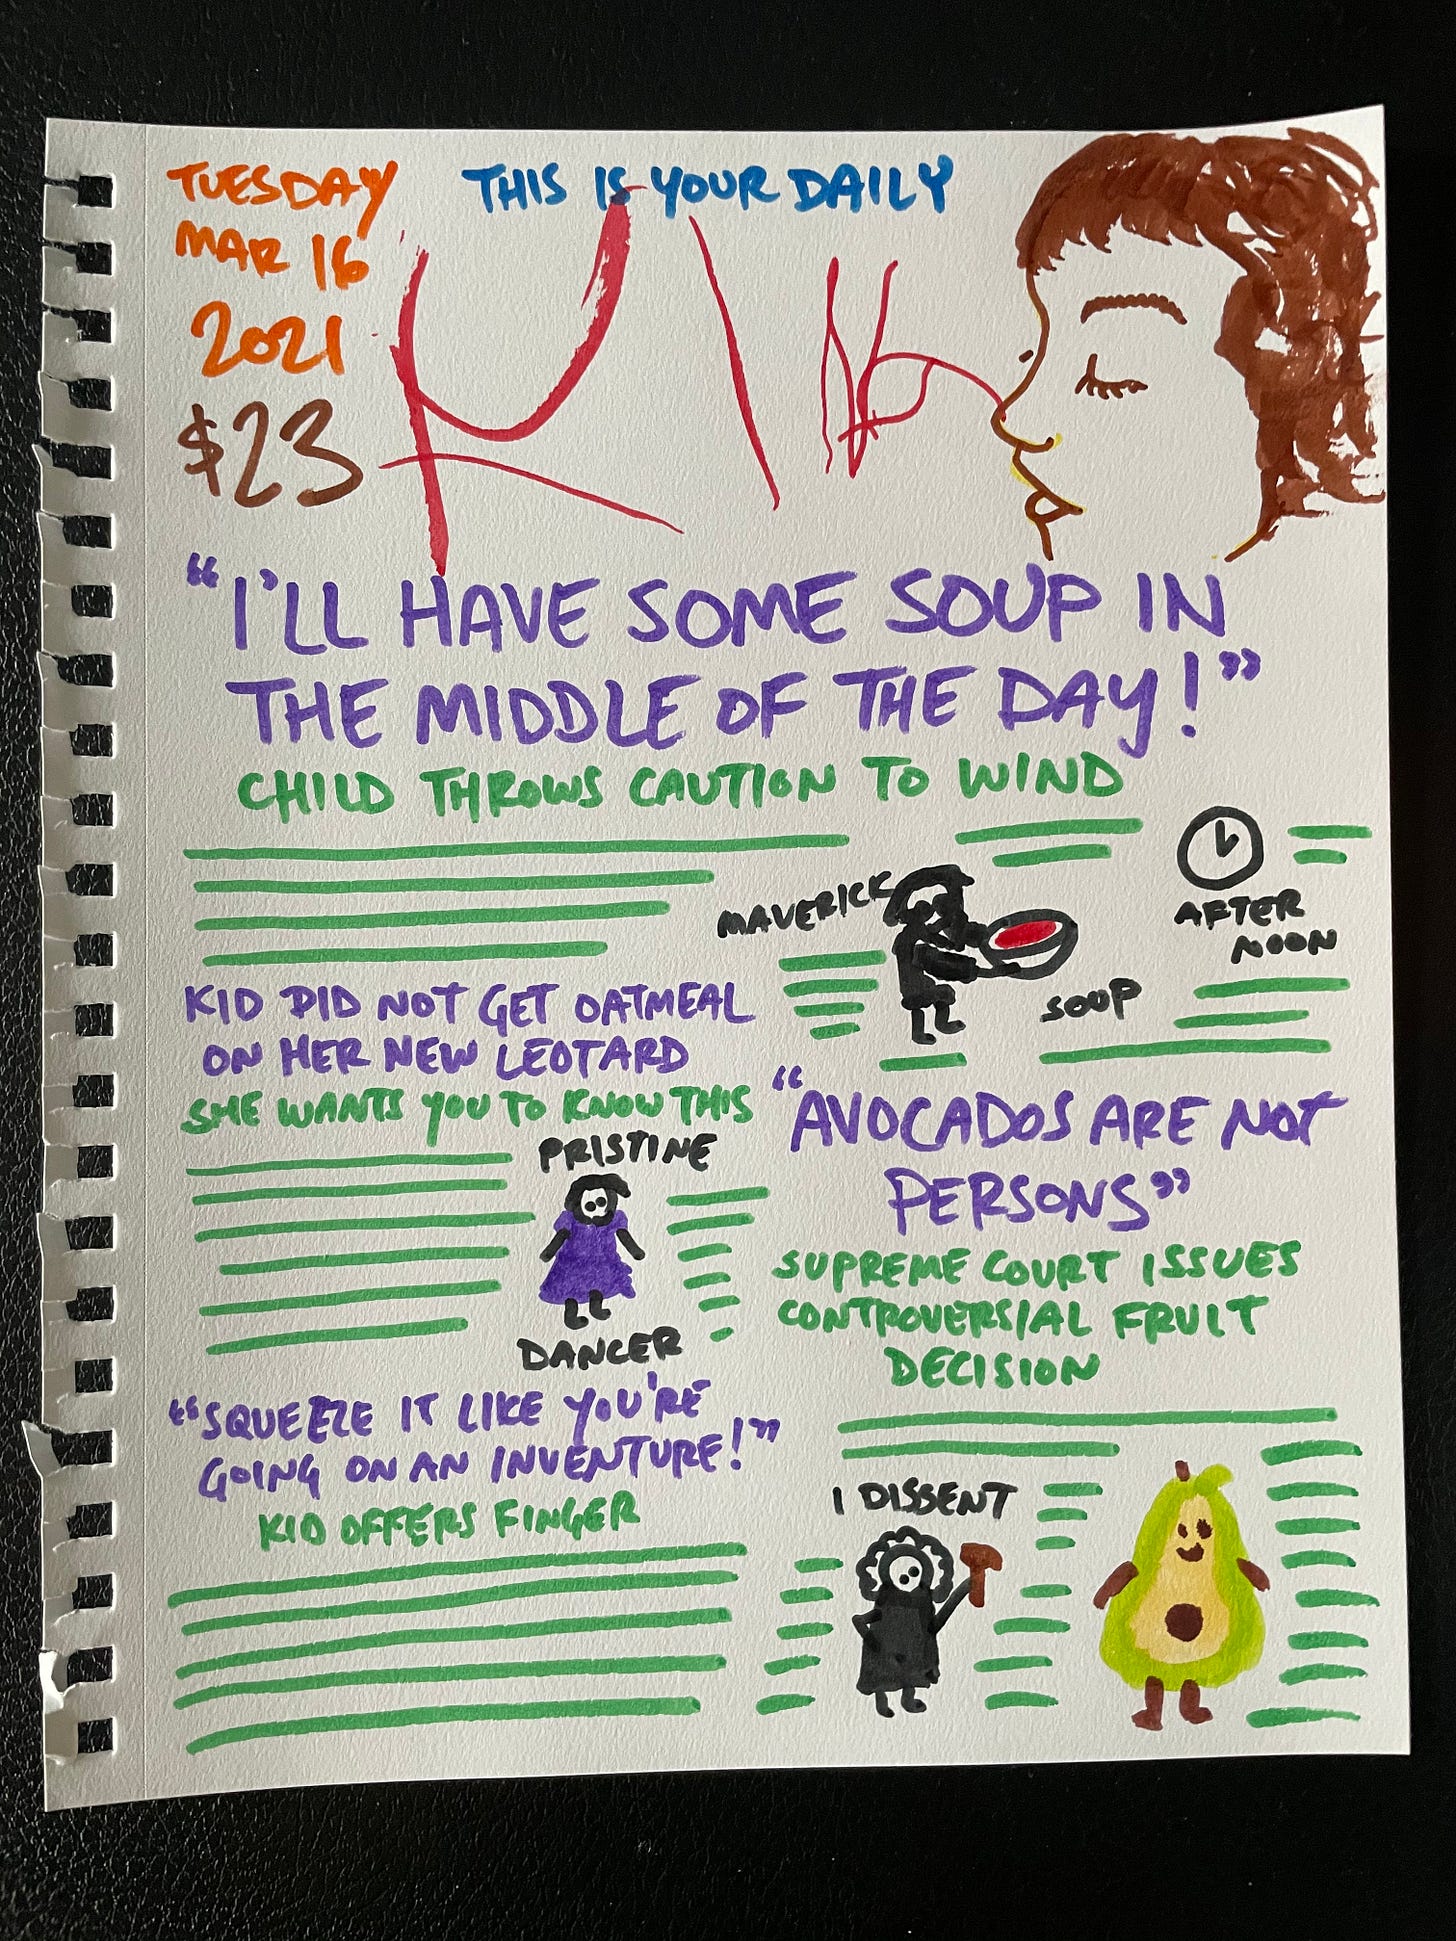 TUESDAY
MAR 16
2021
$23
THIS IS YOUR DAILY
"I'LL HAVE SOME SOUP IN
THE MIDDLE OF THE DAY!"
CHILD THROWS CAUTION TO WIND
MAVERICK
SOUP
AFTER
NOON
KID DID NOT GET OATMEAL
ON HER NEW LEOTARD
SHE WANTS YOU TO KNOW THIS
PRISTINE
DANCER
"SQUEEZE IT LIKE YOU'RE
GOING ON AN INVENTURE!"
KID OFFERS FINGER
"AVOCADOS ARE NOT
PERSONS"
SUPREME COURT ISSUES
CONTROVERSIAL FRUIT
DECISION
I DISSENT